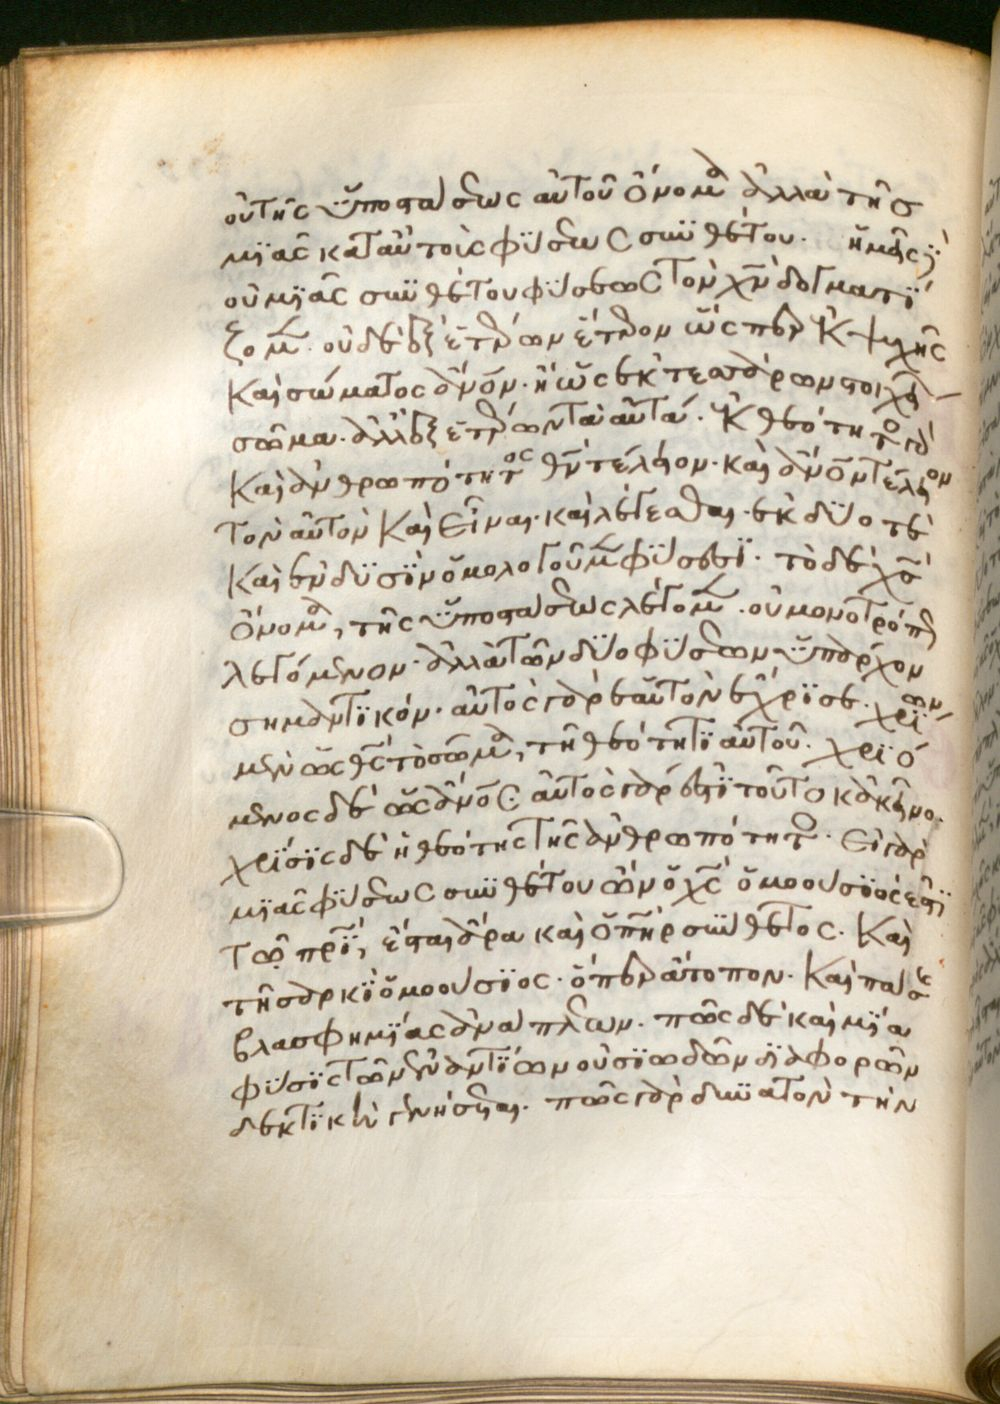 οὐ τῆς ὑποστάσεως αὐτοῦ ὄνομα ἀλλὰ τῆς
μϊᾶς κατ αὐτοὺς φϋσεως συνθέτου. ἡμεῖς
οὐ μϊᾶς συνθέτου φϋσεως τὸν χν δογματϊ
ζομ. οὐδὲ ἐξ ἑτέρων ἕτερον ὥσπερ ἐκ ψυχῆς
καὶ σώματος ἀνον. ἢ ὡς ἐκ τεσσάρων στοιχεί
σῶμα. ἀλλ ἐξ ἑτέρων τὰ αὐτά. ἐκ θεότητο γὰρ
καὶ ἀνθρωπότητος θν τέλειον. καὶ ἀνον τέλειον
τὸν αὐτὸν καὶ εἶναι. καὶ λέγεσθαι. ἐκ δϋο τὲ
καὶ ἐν δϋσϊν ὁμολογοῦμ φϋσεσϊ. τὸ δὲ χς
ὄνομα, τῆς ὑποστάσεως λέγομ. οὐ μονοτρόπως
λεγόμενον. ἀλλὰ τῶν δϋο φϋσεων ὑπάρχον
σημαντϊκόν. αὐτὸς γὰρ ἑαυτὸν ἔχρϊσε. χρΐων
μὲν ὡς θς τὸ σῶμα, τῆ θεότητϊ αὐτοῦ. χρϊό
μενος δὲ ὡς ἀνος. αὐτὸς γάρ ἐστϊ τοῦτο κἀκεῖνο.
χρΐσϊς δὲ ἡ θεότης τῆς ἀνθρωπότητο. Εἰ γὰρ
μϊᾶς φϋσεως συνθέτου ὢν ὁ χς ὁμοουσϊός ἐστϊ
τῶ πρϊ, ἔσται ἄρα καὶ ὁ πηρ σύνθετος. Καὶ
τῆ σαρκϊ ὁμοουσϊος. ὅπερ ἄτοπον. Καὶ πάσ
βλασφημϊας ἀνάπλεων. πῶς δὲ καὶ μϊα
φϋσϊς τῶν ἐναντϊων οὐσϊωδῶν δϊαφορῶν
δεκτϊκὴ γενήσεται. πῶς γὰρ δυνατὸν τὴν